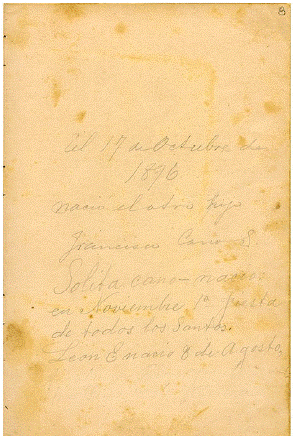 8
El 17 de Octubre de
1896
nacio el otro hijo
Francisco Cano S.
Solita Cano nacio
en Noviembre 1º fiesta
de todos los Santos.
Leon Enano 8 de Agosto,